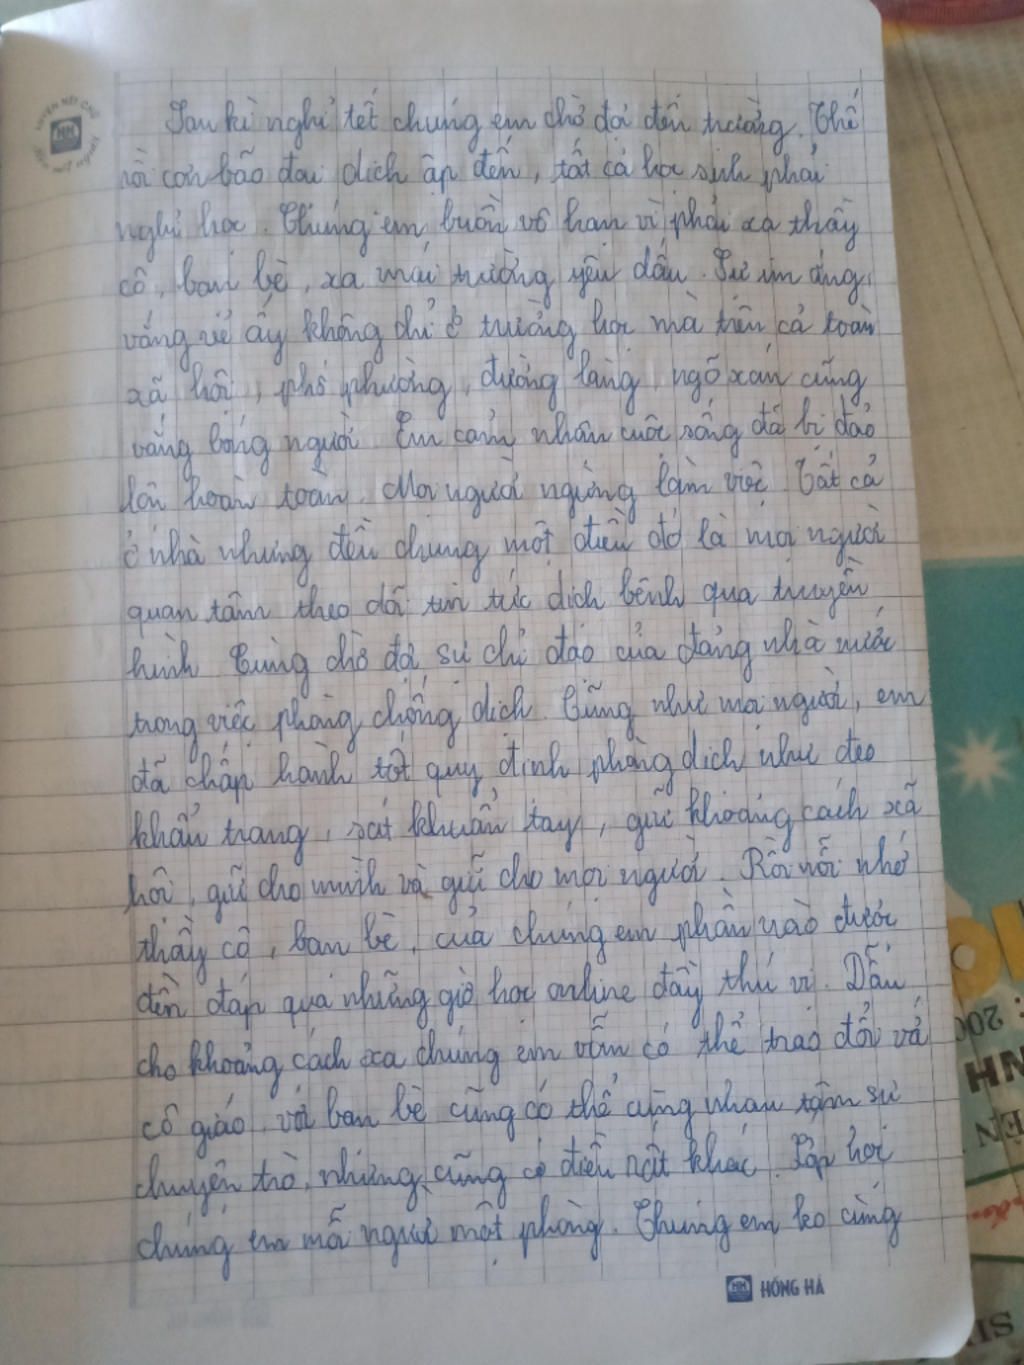 Sau kì nghỉ tết chúng em chờ đợi đến trường. Thế
rồi cơn bão đại dịch ập đến, tất cả học sinh phải
nghỉ học. Chúng em buồn vô hạn vì phải xa thầy
cô, bạn bè, xa mái trường yêu dấu. Sự im ắng,
vắng vẻ ấy không chỉ ở trường học mà trên cả toàn
xã hội, phố phường, đường làng, ngõ xóm cũng
vắng bóng người. Em cảm nhận cuộc sống đã bị đảo
lộn hoàn toàn. Mọi người ngừng làm việc. Tất cả
ở nhà nhưng đều chung một điều đó là mọi người
quan tâm theo dõi tin tức dịch bệnh qua truyền
hình. Cùng chờ đợi sự chỉ đạo của đảng nhà nước
trong việc phòng chống dịch. Cũng như mọi người, em
đã chấp hành tốt quy định phòng dịch như đeo
khẩu trang, sát khuẩn tay, giữ khoảng cách xã
hội, giữ cho mình và giữ cho mọi người. Rồi nỗi nhớ
thầy cô, bạn bè, của chúng em phần nào được
đền đáp qua những giờ học online đầy thú vị. Dẫu
cho khoảng cách xa chúng em vẫn có thể trao đổi với
cô giáo, với bạn bè cũng có thể cùng nhau tâm sự
chuyện trò, nhưng cũng có điều rất khác. Lớp học
chúng em mỗi người một phòng. Chúng em ko cùng
HỒNG HÀ